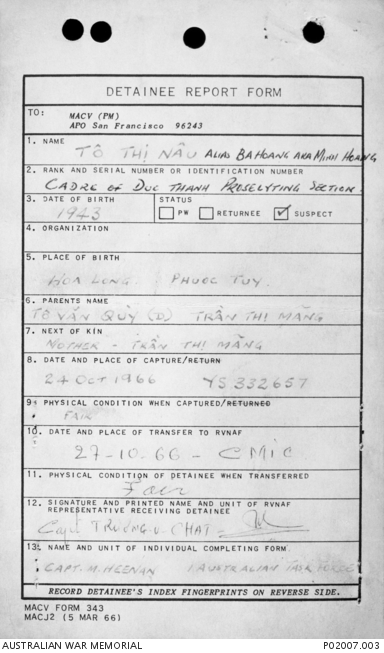 DETAINEE REPORT FORM
TO: MACV (PM)
APO San Francisco 96243
1. NAME
TÔ THỊ NÂU ALIAS BA HOANG AKA MINH HOANG
2. RANK AND SERIAL NUMBER OR IDENTIFICATION NUMBER
CADRE OF DUC THANH PROSELYTING SECTION
3. DATE OF BIRTH
1943
STATUS
PW RETURNEE SUSPECT
4. ORGANIZATION
5. PLACE OF BIRTH
HOA LONG PHUOC TUY.
6. PARENTS NAME
TÔ VĂN QUỲ (D) TRẦN THỊ MĂNG
7. NEXT OF KIN
MOTHER - TRẦN THỊ MĂNG
8. DATE AND PLACE OF CAPTURE/RETURN
24 OCT 1966 YS 332657
9. PHYSICAL CONDITION WHEN CAPTURED/RETURNED
FAIR
10. DATE AND PLACE OF TRANSFER TO RVNAF
27-10-66 - CMIC
11. PHYSICAL CONDITION OF DETAINEE WHEN TRANSFERRED
Fair
12. SIGNATURE AND PRINTED NAME AND UNIT OF RVNAF
REPRESENTATIVE RECEIVING DETAINEE
Capt TRƯƠNG V. CHAT
13. NAME AND UNIT OF INDIVIDUAL COMPLETING FORM
CAPT. M. HEENAN 1 AUSTRALIAN TASK FORCE
RECORD DETAINEE'S INDEX FINGERPRINTS ON REVERSE SIDE.
MACV FORM 343
MACJ2 (5 MAR 66)
AUSTRALIAN WAR MEMORIAL P02007.003